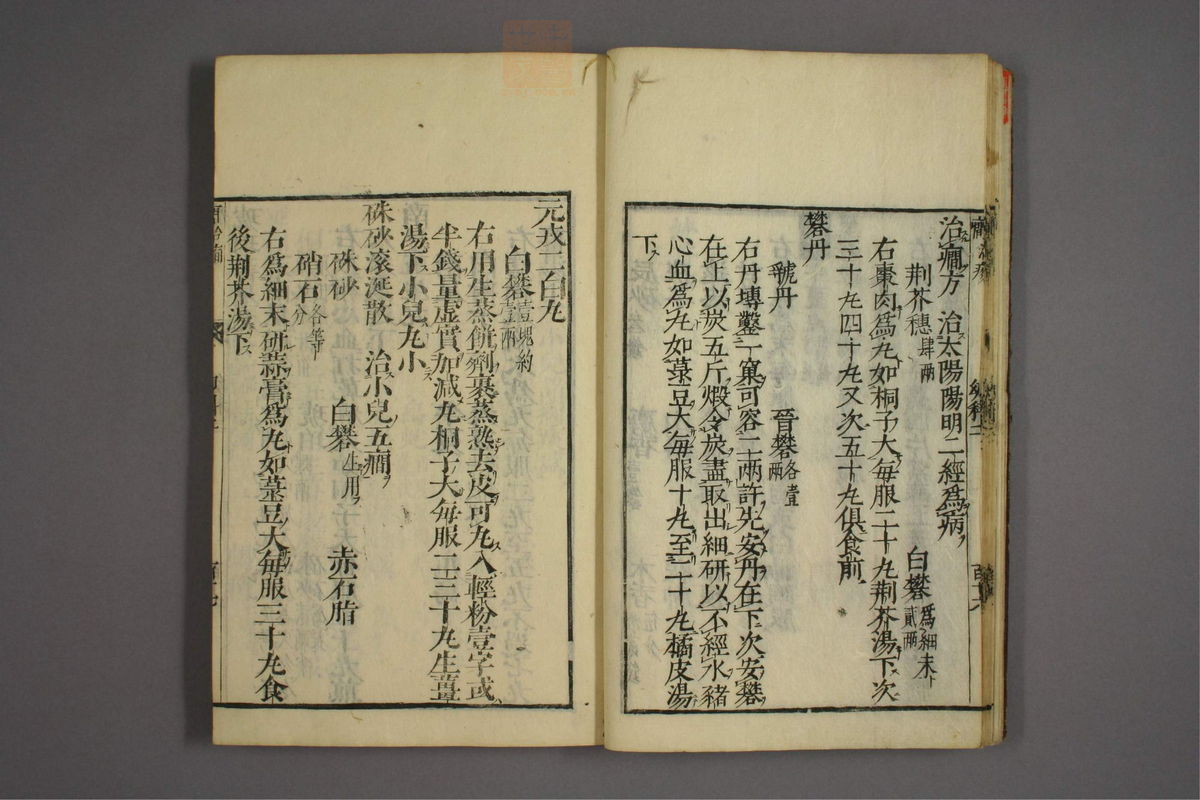 治癇方　治太陽陽明二經爲病
荆芥穗肆兩　白礬爲細末貳兩
右棗肉爲丸如桐子大每服二十丸荆芥湯下次
三十丸四十丸又次五十丸俱食前
礬丹
虢丹　晉礬各壹兩
右丹塼鑿一窠可容二兩許先安丹在下次安礬
在上以炭五斤煅令炭盡取出細研以不經水豬
心血爲丸如菉豆大每服十丸至二十丸橘皮湯
下
元戎二白丸
白礬壹塊約壹兩
右用生蒸餅劑裹蒸熟去皮可丸入輕粉壹字或
半錢量虛實加減丸桐子大每服二三十丸生薑
湯下小兒丸小
硃砂滚涎散　治小兒五癇
硃砂　白礬生用　赤石脂
硝石各等分
右爲細末研蒜膏爲丸如菉豆大每服三十丸食
後荆芥湯下